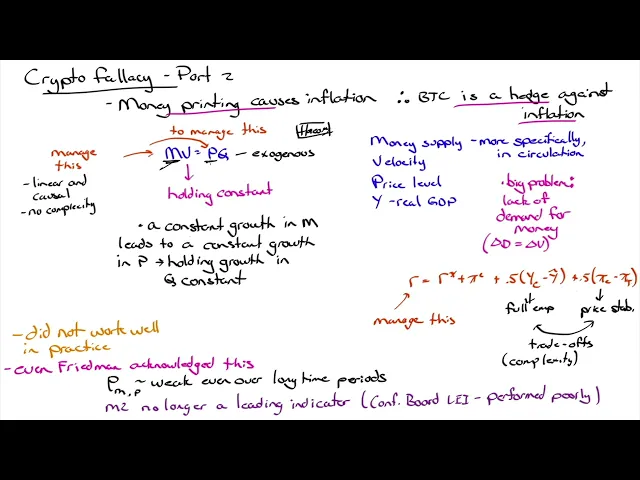 Crypto fallacy - Part 2
- Money printing causes inflation ∴ BTC is a hedge against
inflation
to manage this
manage
this
MV = PQ - exogenous
- linear and
causal
- no complexity
holding constant
• a constant growth in M
leads to a constant growth
in P → holding growth in
Q constant
Money supply - more specifically,
in circulation
Velocity
Price level
Y - real GDP
• big problem:
lack of
demand for
money
(ΔD = ΔV)
r = r* + π^e + .5(Y_c - Ŷ) + .5(π_c - π_T)
manage this
full emp
price stab.
trade-offs
(complexity)
- did not work well
in practice
- even Friedman acknowledged this
ρ_m,p ~ weak even over long time periods
m2 no longer a leading indicator (Conf. Board LEI - performed poorly)